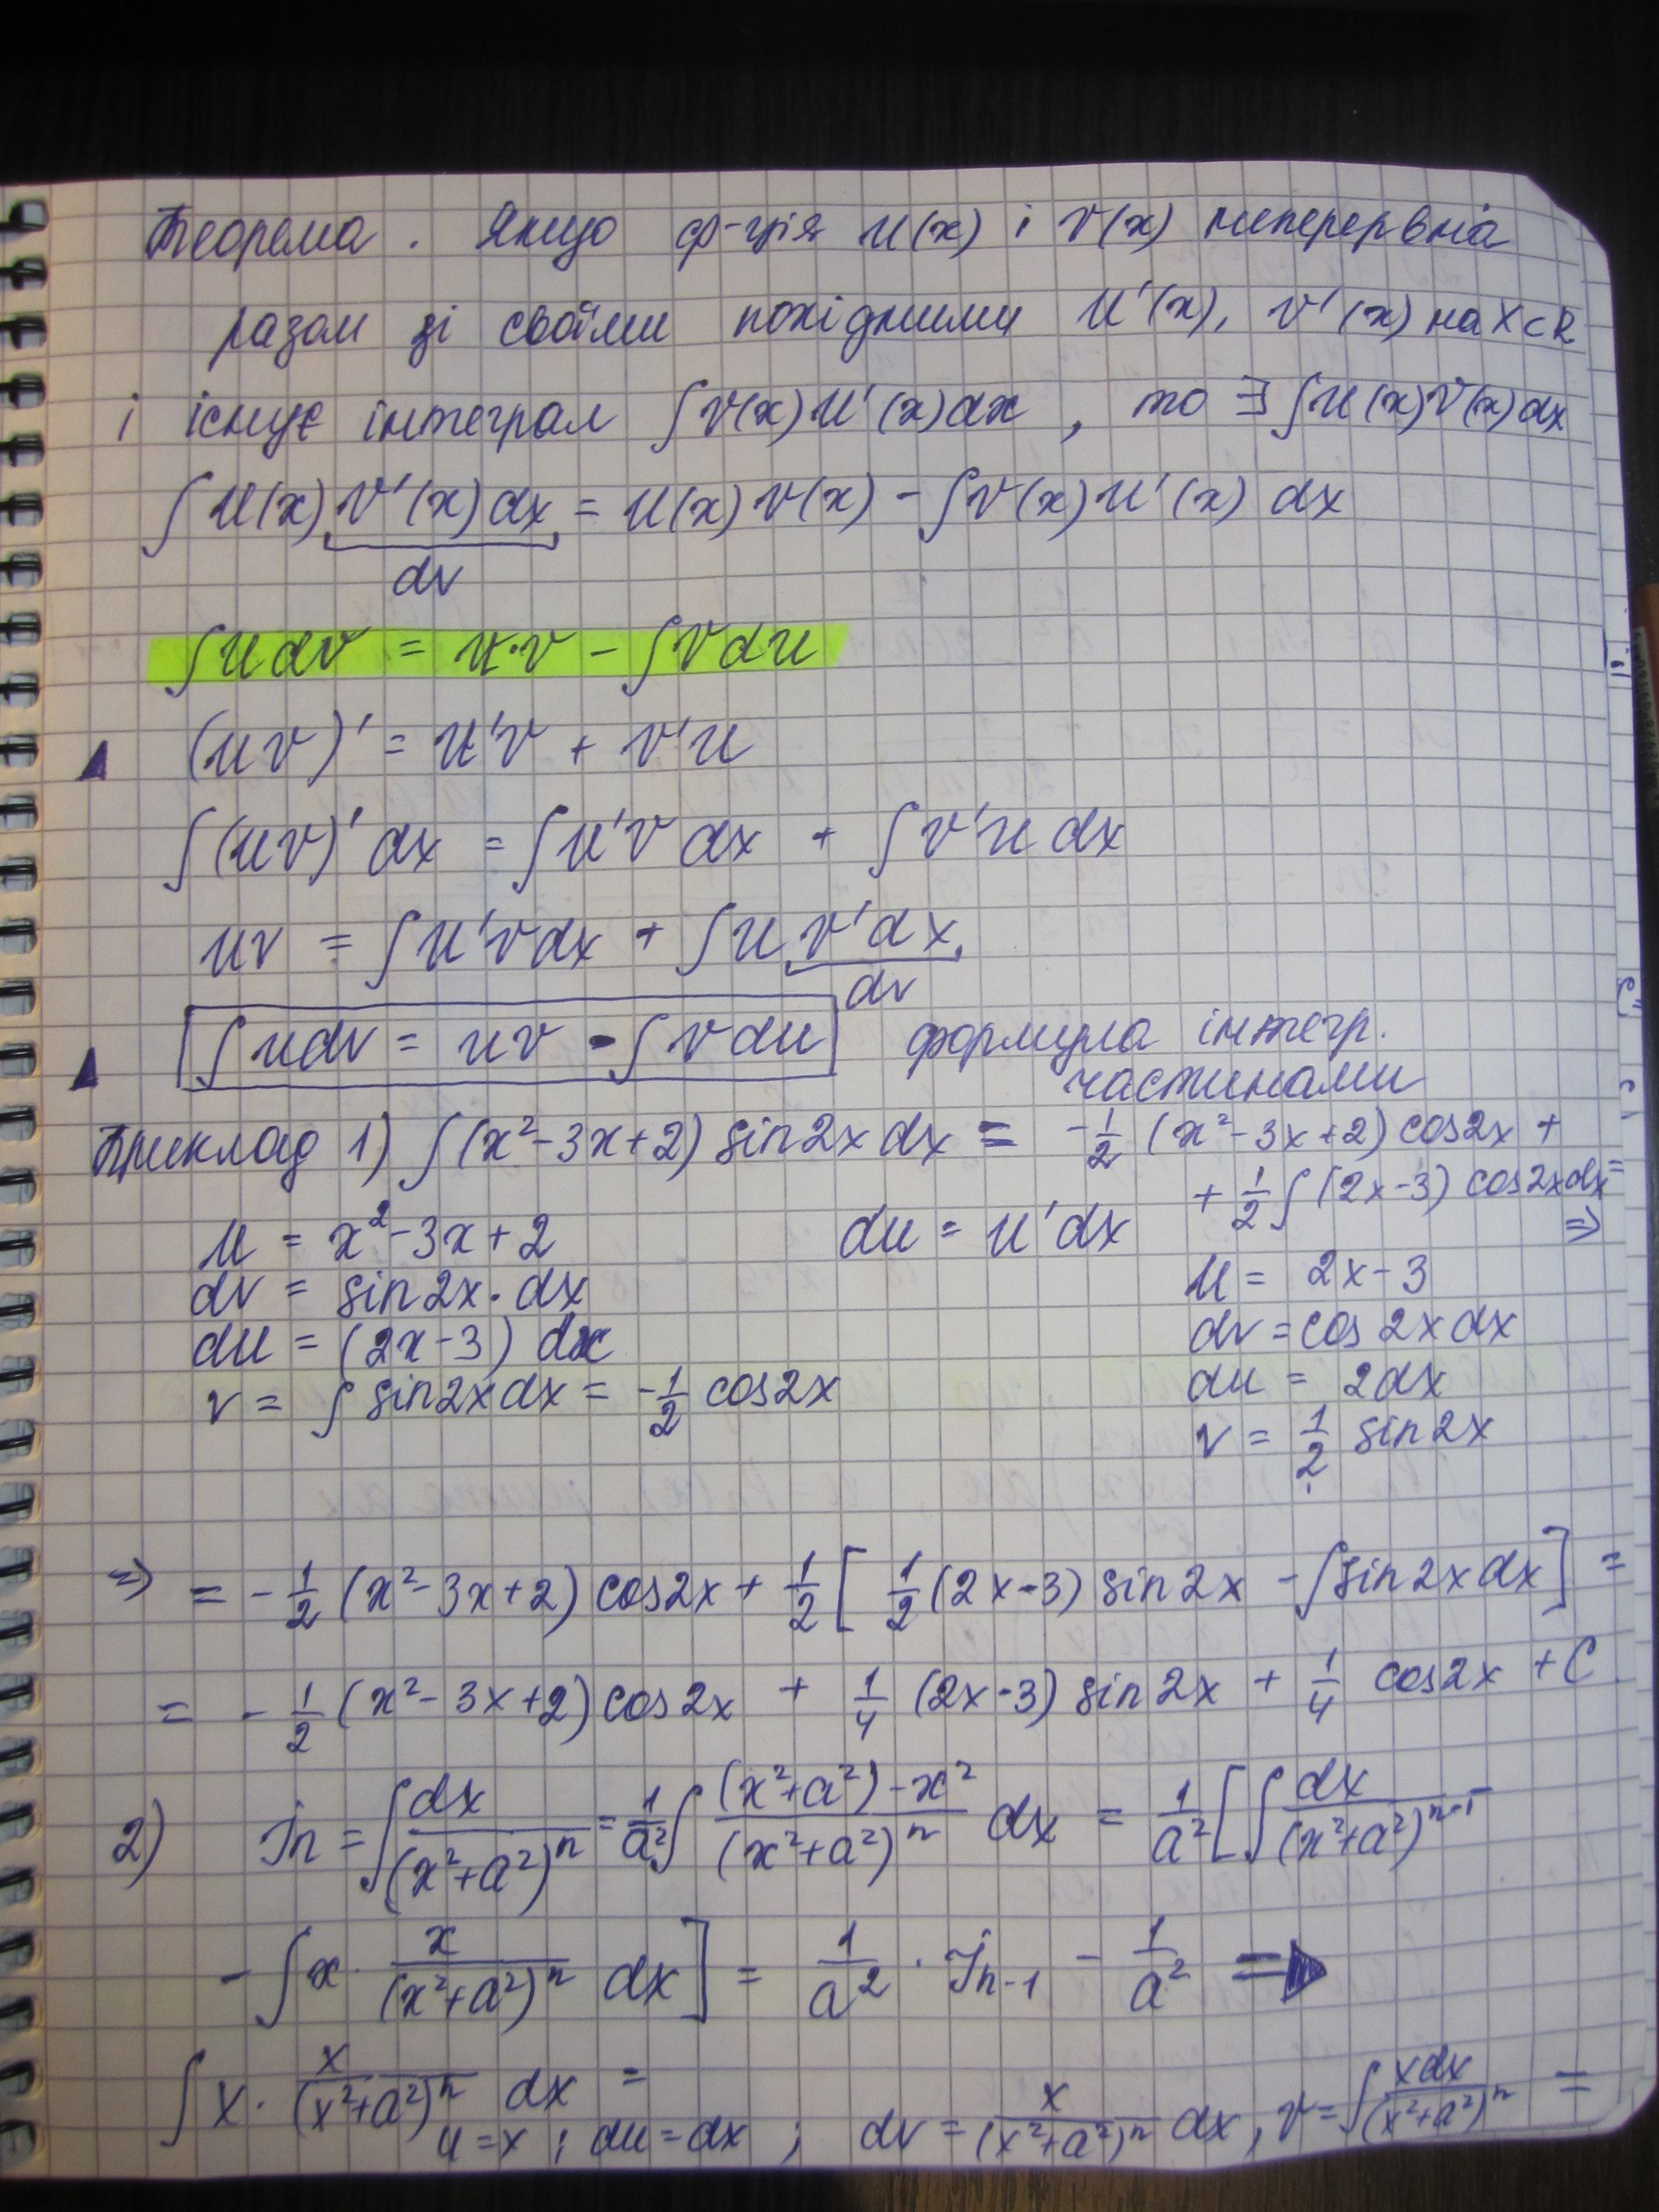 Теорема. Якщо ф-ція u(x) і v(x) неперервна
разом зі своїми похідними u'(x), v'(x) на X⊂R
і існує інтеграл ∫v(x)u'(x)dx, то ∃∫u(x)v'(x)dx
∫u(x)v'(x)dx = u(x)v(x) - ∫v(x)u'(x) dx
dv
∫udv = u·v - ∫vdu
(uv)' = u'v + v'u
∫(uv)' dx = ∫u'v dx + ∫v'u dx
uv = ∫u'vdx + ∫u v'dx
dv
∫udv = uv - ∫vdu формула інтегр.
частинами
Приклад 1) ∫(x²-3x+2) sin2x dx = -1/2 (x²-3x+2) cos2x +
+ 1/2 ∫(2x-3) cos2xdx =
⇒
u = x²-3x+2 du = u'dx
dv = sin2x·dx
du = (2x-3) dx
v = ∫ sin2xdx = -1/2 cos2x
u = 2x-3
dv = cos2xdx
du = 2dx
v = 1/2 sin2x
⇒ = -1/2 (x²-3x+2) cos2x + 1/2 [ 1/2 (2x-3) sin2x - ∫sin2xdx] =
= -1/2 (x²-3x+2) cos2x + 1/4 (2x-3) sin2x + 1/4 cos2x + C
2) Jn = ∫ dx/(x²+a²)ⁿ = 1/a² ∫ ((x²+a²)-x²)/(x²+a²)ⁿ dx = 1/a² [∫ dx/(x²+a²)ⁿ⁻¹
- ∫x· x/(x²+a²)ⁿ dx] = 1/a² · Jn-1 - 1/a² ⇒
∫x· x/(x²+a²)ⁿ dx =
u=x; du=dx; dv = x/(x²+a²)ⁿ dx, v=∫ xdx/(x²+a²)ⁿ =